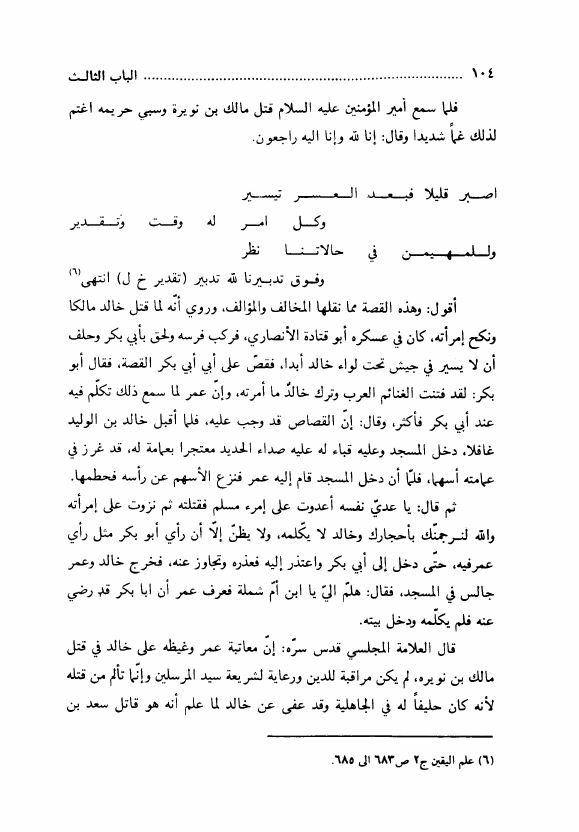 ١٠٤ ........................................ الباب الثالث
فلما سمع أمير المؤمنين عليه السلام قتل مالك بن نويرة وسبي حريمه اغتم
لذلك غماً شديدا وقال: إنا لله وإنا اليه راجعون.
اصبر قليلا فبعد العسر تيسير
وكل امر له وقت وتقدير
وللمهيمن في حالاتنا نظر
وفوق تدبيرنا لله تدبير (تقدير خ ل) انتهى(٦)
أقول: وهذه القصة مما نقلها المخالف والمؤالف، وروي أنّه لما قتل خالد مالكا
ونكح إمرأته، كان في عسكره أبو قتادة الأنصاري، فركب فرسه ولحق بأبي بكر وحلف
أن لا يسير في جيش تحت لواء خالد أبدا، فقصّ على أبي أبي بكر القصة، فقال أبو
بكر: لقد فتنت الغنائم العرب وترك خالدٌ ما أمرته، وإنّ عمر لما سمع ذلك تكلّم فيه
عند أبي بكر فأكثر، وقال: إنّ القصاص قد وجب عليه، فلما أقبل خالد بن الوليد
غافلا، دخل المسجد وعليه قباء له عليه صداء الحديد معتجرا بعمامة له، قد غرز في
عمامته أسهما، فلمّا أن دخل المسجد قام إليه عمر فنزع الأسهم عن رأسه فحطمها.
ثم قال: يا عديّ نفسه أعدوت على إمرء مسلم فقتلته ثم نزوت على إمرأته
والله لنرجمنّك بأحجارك وخالد لا يكّلمه، ولا يظنّ إلّا أن رأي أبو بكر مثل رأي
عمرفيه، حتّى دخل إلى أبي بكر واعتذر إليه فعذره وتجاوز عنه، فخرج خالد وعمر
جالس في المسجد، فقال: هلمّ اليّ يا ابن أمّ شملة فعرف عمر أن ابا بكر قد رضي
عنه فلم يكلّمه ودخل بيته.
قال العلامة المجلسي قدس سرّه: إنّ معاتبة عمر وغيظه على خالد في قتل
مالك بن نويره، لم يكن مراقبة للدين ورعاية لشريعة سيد المرسلين وإنّما تألم من قتله
لأنه كان حليفاً له في الجاهلية وقد عفى عن خالد لما علم أنه هو قاتل سعد بن
(٦) علم اليقين ج٢ ص٦٨٣ الى ٦٨٥.